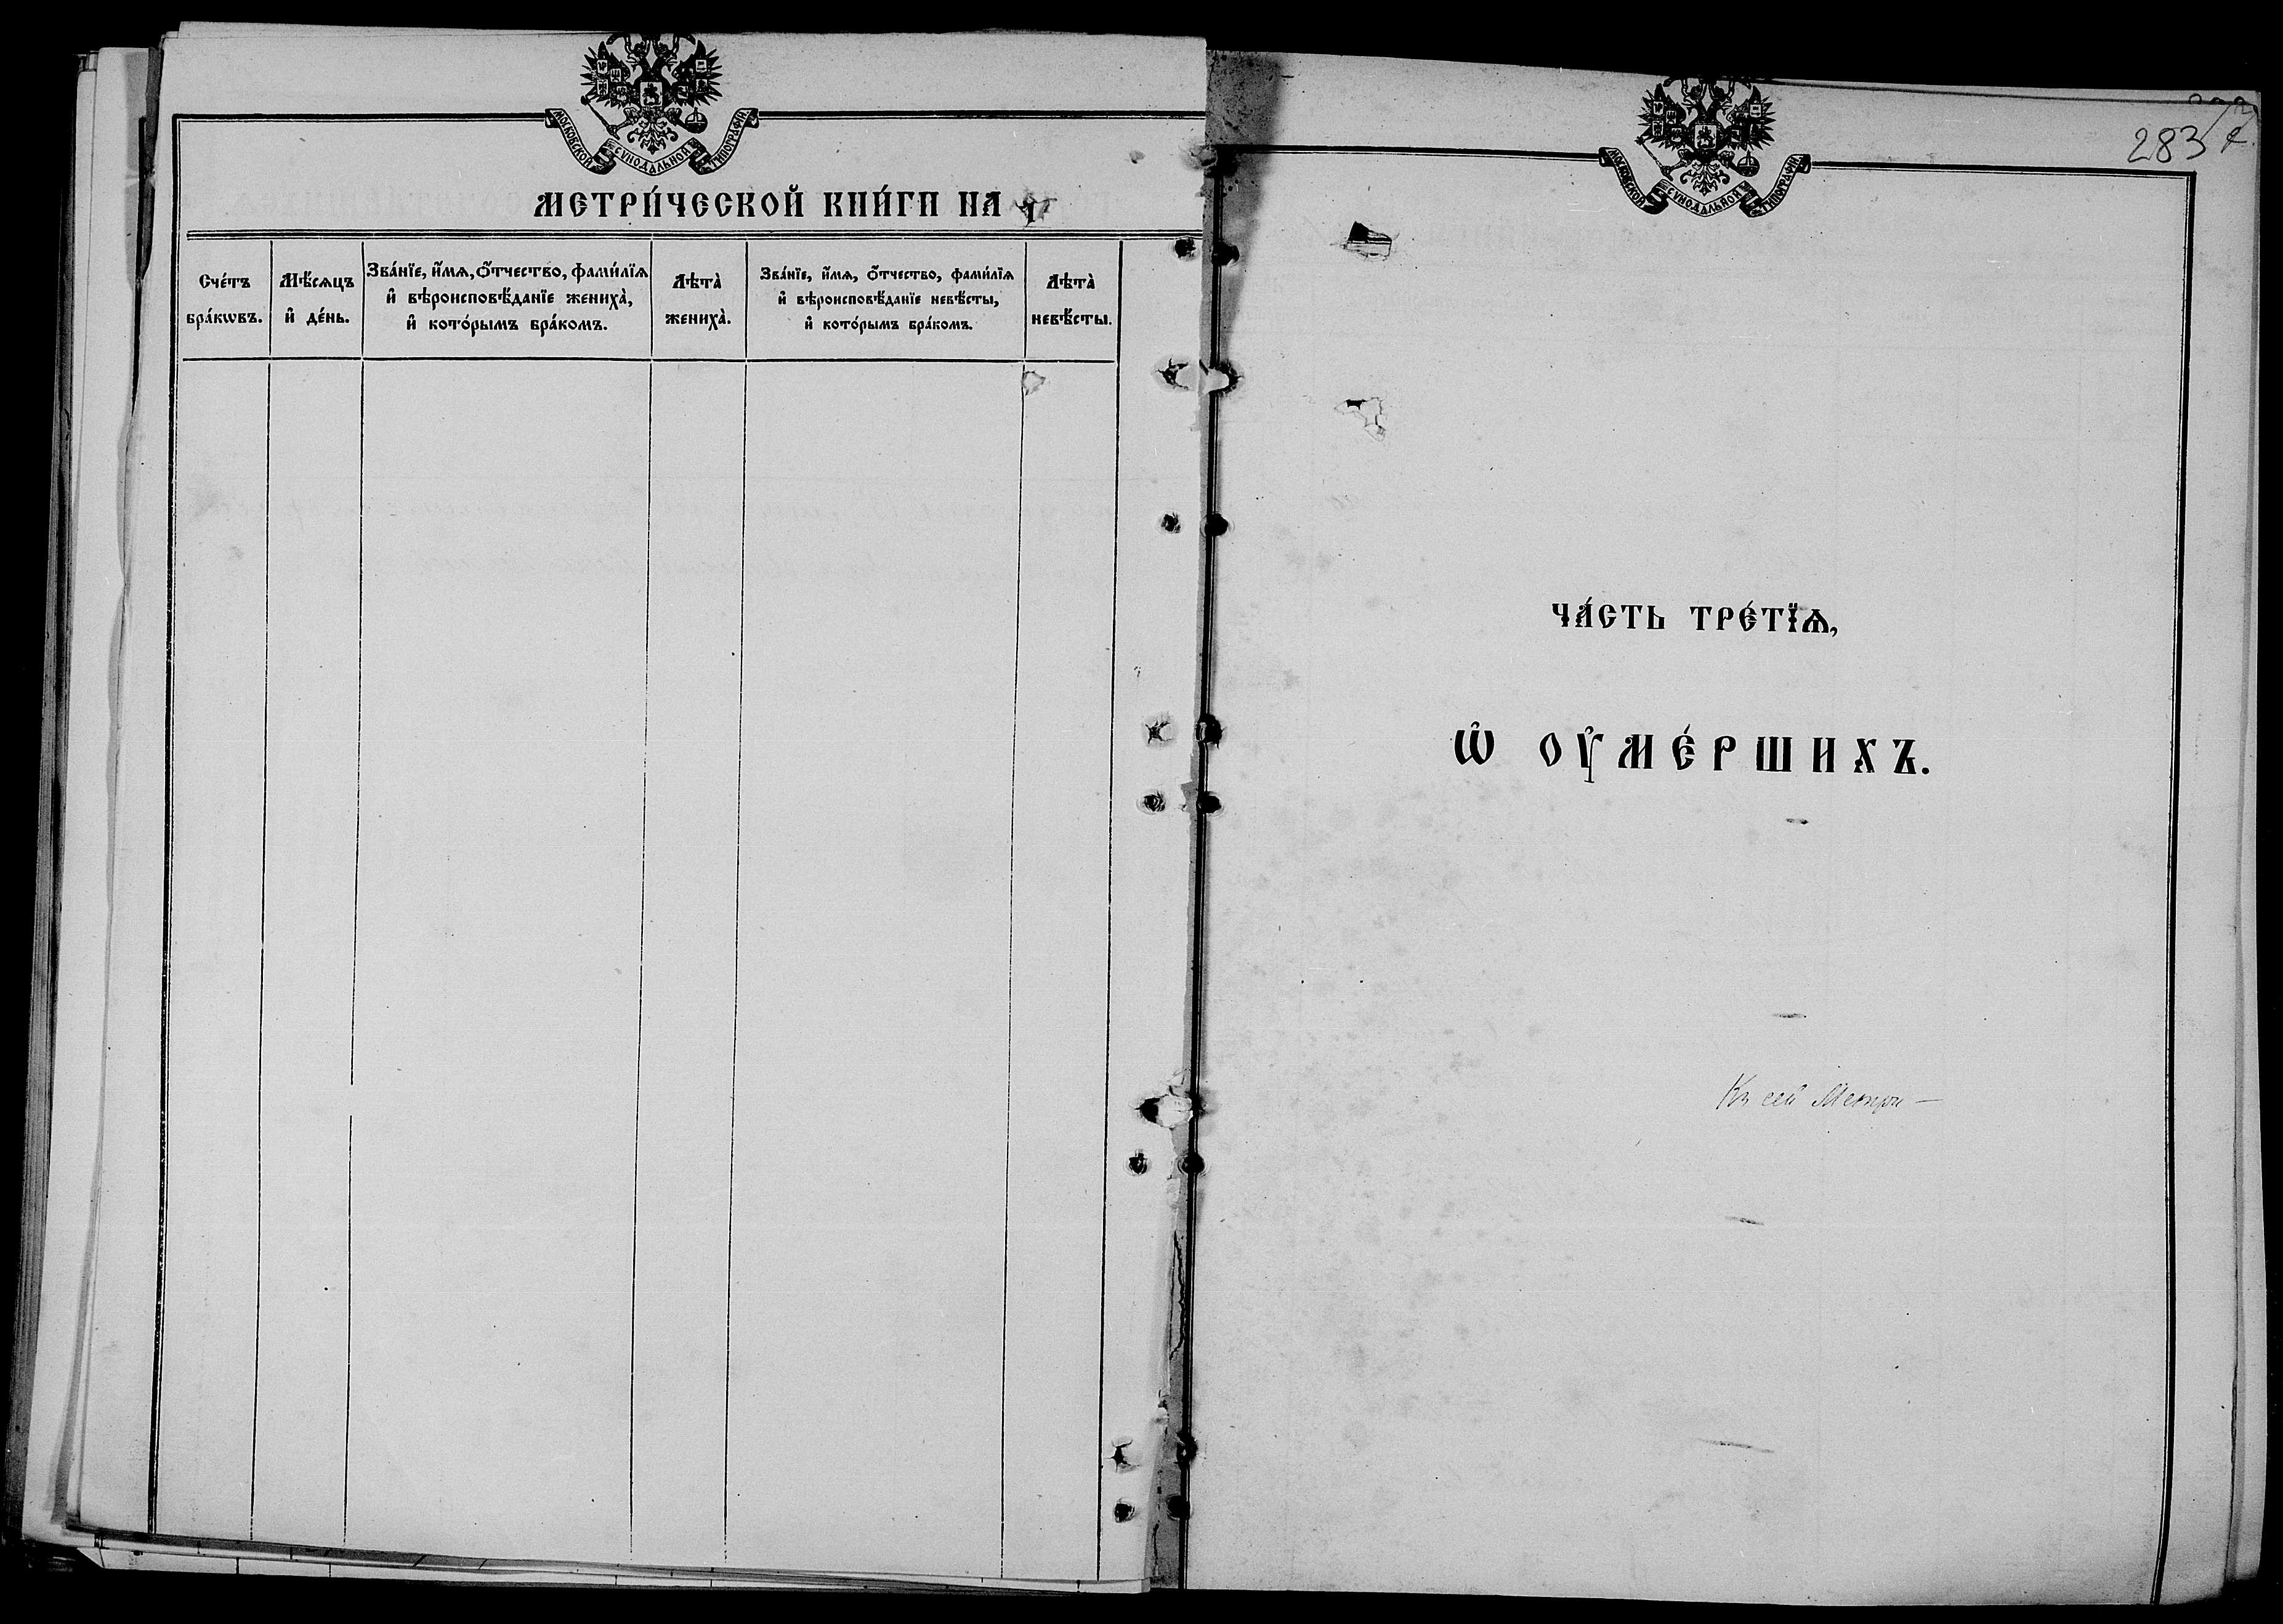 МОСКОВСКОЙ СѴНОДАЛЬНОЙ ТИПОГРАФІИ.
МЕТРИ́ЧЕСКОЙ КНИ́ГИ НА
Сче́тъ бра́кѡвъ.
Мѣ́сѧцъ и҆ де́нь.
Зва́нїе, и҆́мѧ, ѻ҆́тчество, фами́лїѧ
и҆ вѣроисповѣ́данїе жениха̀,
и҆ кото́рымъ бра́комъ.
Лѣта̀ жениха̀.
Зва́нїе, и҆́мѧ, ѻ҆́тчество, фами́лїѧ
и҆ вѣроисповѣ́данїе невѣ́сты,
и҆ кото́рымъ бра́комъ.
Лѣта̀ невѣ́сты.
МОСКОВСКОЙ СѴНОДАЛЬНОЙ ТИПОГРАФІИ.
283
ЧА́СТЬ ТРЕ́ТЇѦ,
Ѡ҆ ОУ҆МЕ́РШИХЪ.
Къ сей Метри—